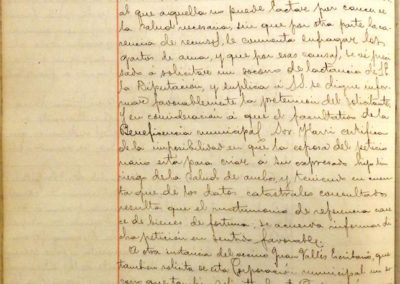 al que aquella no puede lactar por carecer
la salud necesaria, sin que por otra parte la ca-
rencia de recursos, le consienta sufragar los
gastos de ama, y que por esas causas, se ve preci
sado a solicitar un socorro de lactancia de
la Diputación, y suplica á S.S. se digne infor-
mar favorablemente la pretension del solicitante
y en consideración á que el facultativo de la
Beneficencia municipal Sor certifica
de la imposibilidad en que la esposa del peticio
nario está para criar á su expresado hijo sin
riesgo de la salud de ambos, y teniendo en cuen
ta que de los datos catastrales consultados
resulta que el matrimonio de referencia care
ce de bienes de fortuna, se acuerda informar di
cha petición en sentido favorable.
A otra instancia del vecino Juan Valles que
tambien solicita de esta Corporacion municipal un so
corro